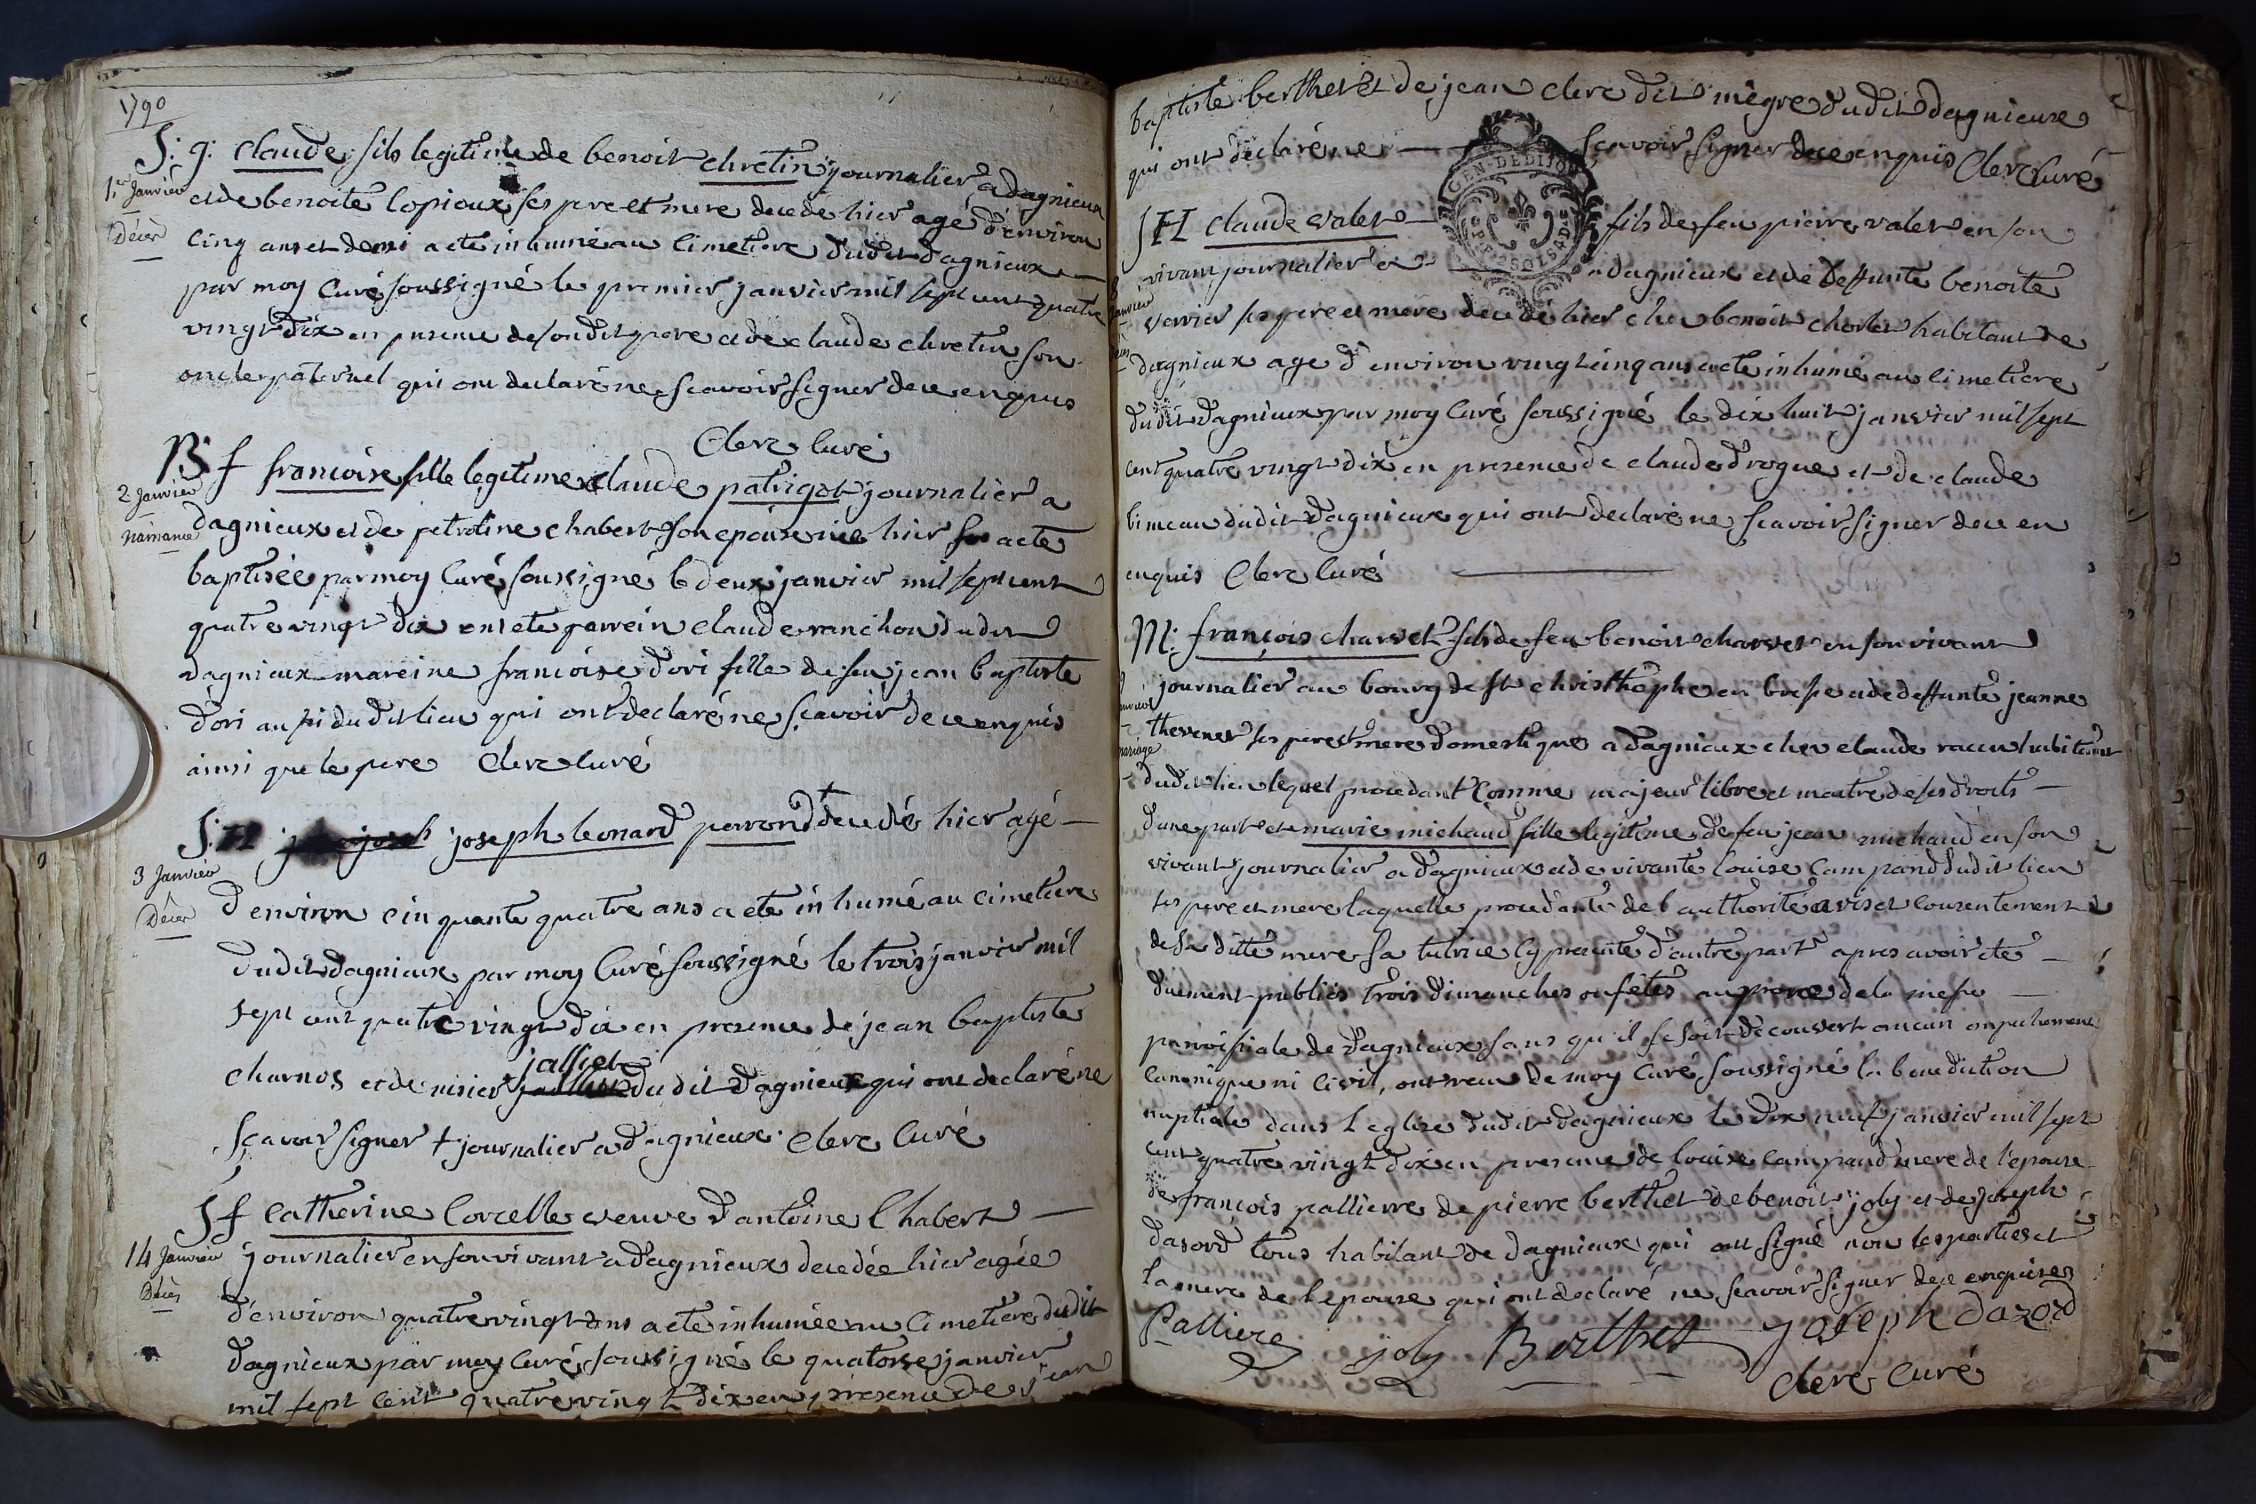 1790
S: g: claude fils legitime de benoit chretin journalier a dagnieux
1er Janvier
Décès
et de benoite lopioux ses pere et mere decedé hier agé d'environ
cinq ans et demi a eté inhumé au cimetiere dudit dagnieux
par moy curé soussigné le premier janvier mil sept cent quatre
vingt dix en presence de son dit pere et de claude chretin son
oncle paternel qui ont declaré ne scavoir signer de ce enquis
Clerc curé
B: f francoise fille legitime claude patrigot journalier a
2 Janvier
Naissance
dagnieux et de petroline chabert son epouse née hier a eté
baptisée par moy curé soussigné le deux janvier mil sept cent
quatre vingt dix ont eté parrein claude ranchon dudit
dagnieux mareine francoise d'ori fille de feu jean baptiste
d'ori aussi dudit lieu qui ont declaré ne scavoir de ce enquis
ainsi que le pere Clerc curé
S: H joseph leonard perrond + decedé hier agé
3 Janvier
Décès
d'environ cinquante quatre ans a eté inhumé au cimetiere
dudit dagnieux par moy curé soussigné le trois janvier mil
sept cent quatre vingt dix en presence de jean baptiste
jalliet
charnos et de nisier dudit dagnieux qui ont declaré ne
scavoir signer + journalier a dagnieux. Clerc curé
S f catherine Corcelle veuve d'antoine Chabert
14 Janvier
Décès
journalier en son vivant a dagnieux decedée hier agée
d'environ quatre vingt ans a eté inhumée au cimetiere dudit
dagnieux par moy curé soussigné le quatorse janvier
mil sept cent quatre vingt dix en presence de jean
baptiste berthet et de jean clerc dit mègre dudit dagnieux
qui ont declaré ne scavoir signer de ce enquis Clerc curé
GEN. DE DIJON
S H claude valet fils de feu pierre valet en son
vivant journalier a dagnieux et de deffunte benoite
8
janvier
verrier ses pere et mere decedé hier chez benoit chorlet habitant de
dagnieux agé d'environ vingt cinq ans a eté inhumé au cimetiere
dudit dagnieux par moy curé soussigné le dix huit janvier mil sept
cent quatre vingt dix en presence de claude drogue et de claude
bimeau dudit dagnieux qui ont declaré ne scavoir signer de ce en
enquis Clerc curé
M: françois charvet fils de feu benoit charvet en son vivant
journalier au bourg de st christhophe en bresse et de deffunte jeanne
mariage
thevenet ses pere et mere domestique a dagnieux chez claude racu habitant
dudit lieu lequel procedant comme majeur libre et maitre de ses droits
d'une part et marie michaud fille legitime de feu jean michaud en son
vivant journalier a dagnieux et de vivante louise campand dudit lieu
ses pere et mere laquelle procedante de l'authorité avis et consentement
de sa ditte mere sa tutrice cy presente d'autre part apres avoir eté
duement publiés trois dimanches ou fêtes au prone de la messe
parroissiale de dagnieux sans qu'il se soit decouvert aucun empechement
canonique ni civil, ont recu de moy curé soussigné la benediction
nuptiale dans l'eglise dudit dagnieux le dix neuf janvier mil sept
cent quatre vingt dix en presence de louise campand mere de l'epouse
de francois pallierre de pierre berthet de benoit joly et de joseph
dasord tous habitant de dagnieux qui ont signé non les parties et
la mere de l'epouse qui ont declaré ne scavoir signer de ce enquises
Palliere joly Berthet joseph dazord
Clerc curé